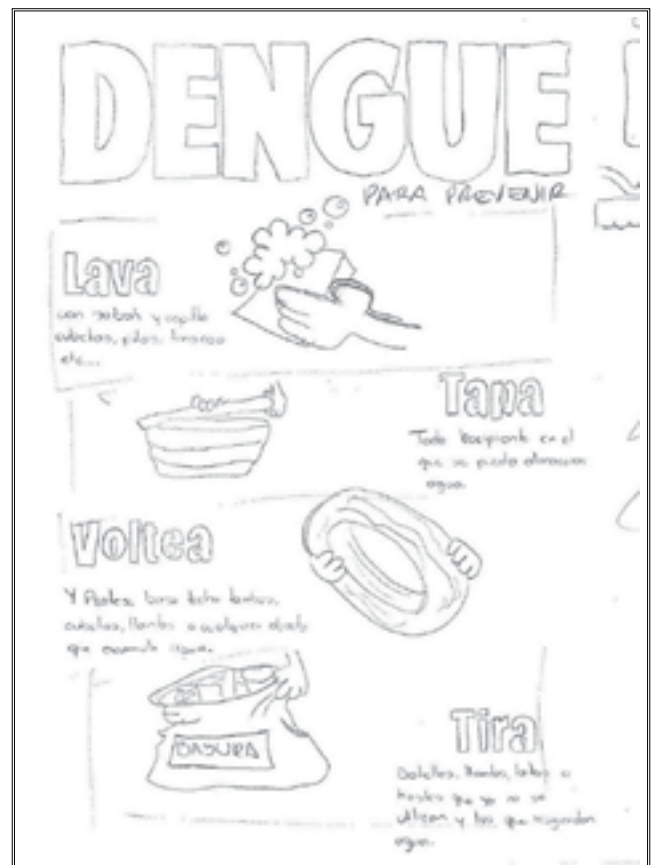 DENGUE
PARA PREVENIR
Lava
con y cepillo
cubetas, pilas, tinacos
etc...
Tapa
Todo recipiente en el
que se pueda almacenar
agua.
Voltea
Y
cubetas, llantas o cualquier objeto
que acumule agua.
BASURA
Tira
Botellas, llantas, latas o
trastes que ya no se
utilizan y los que
agua.